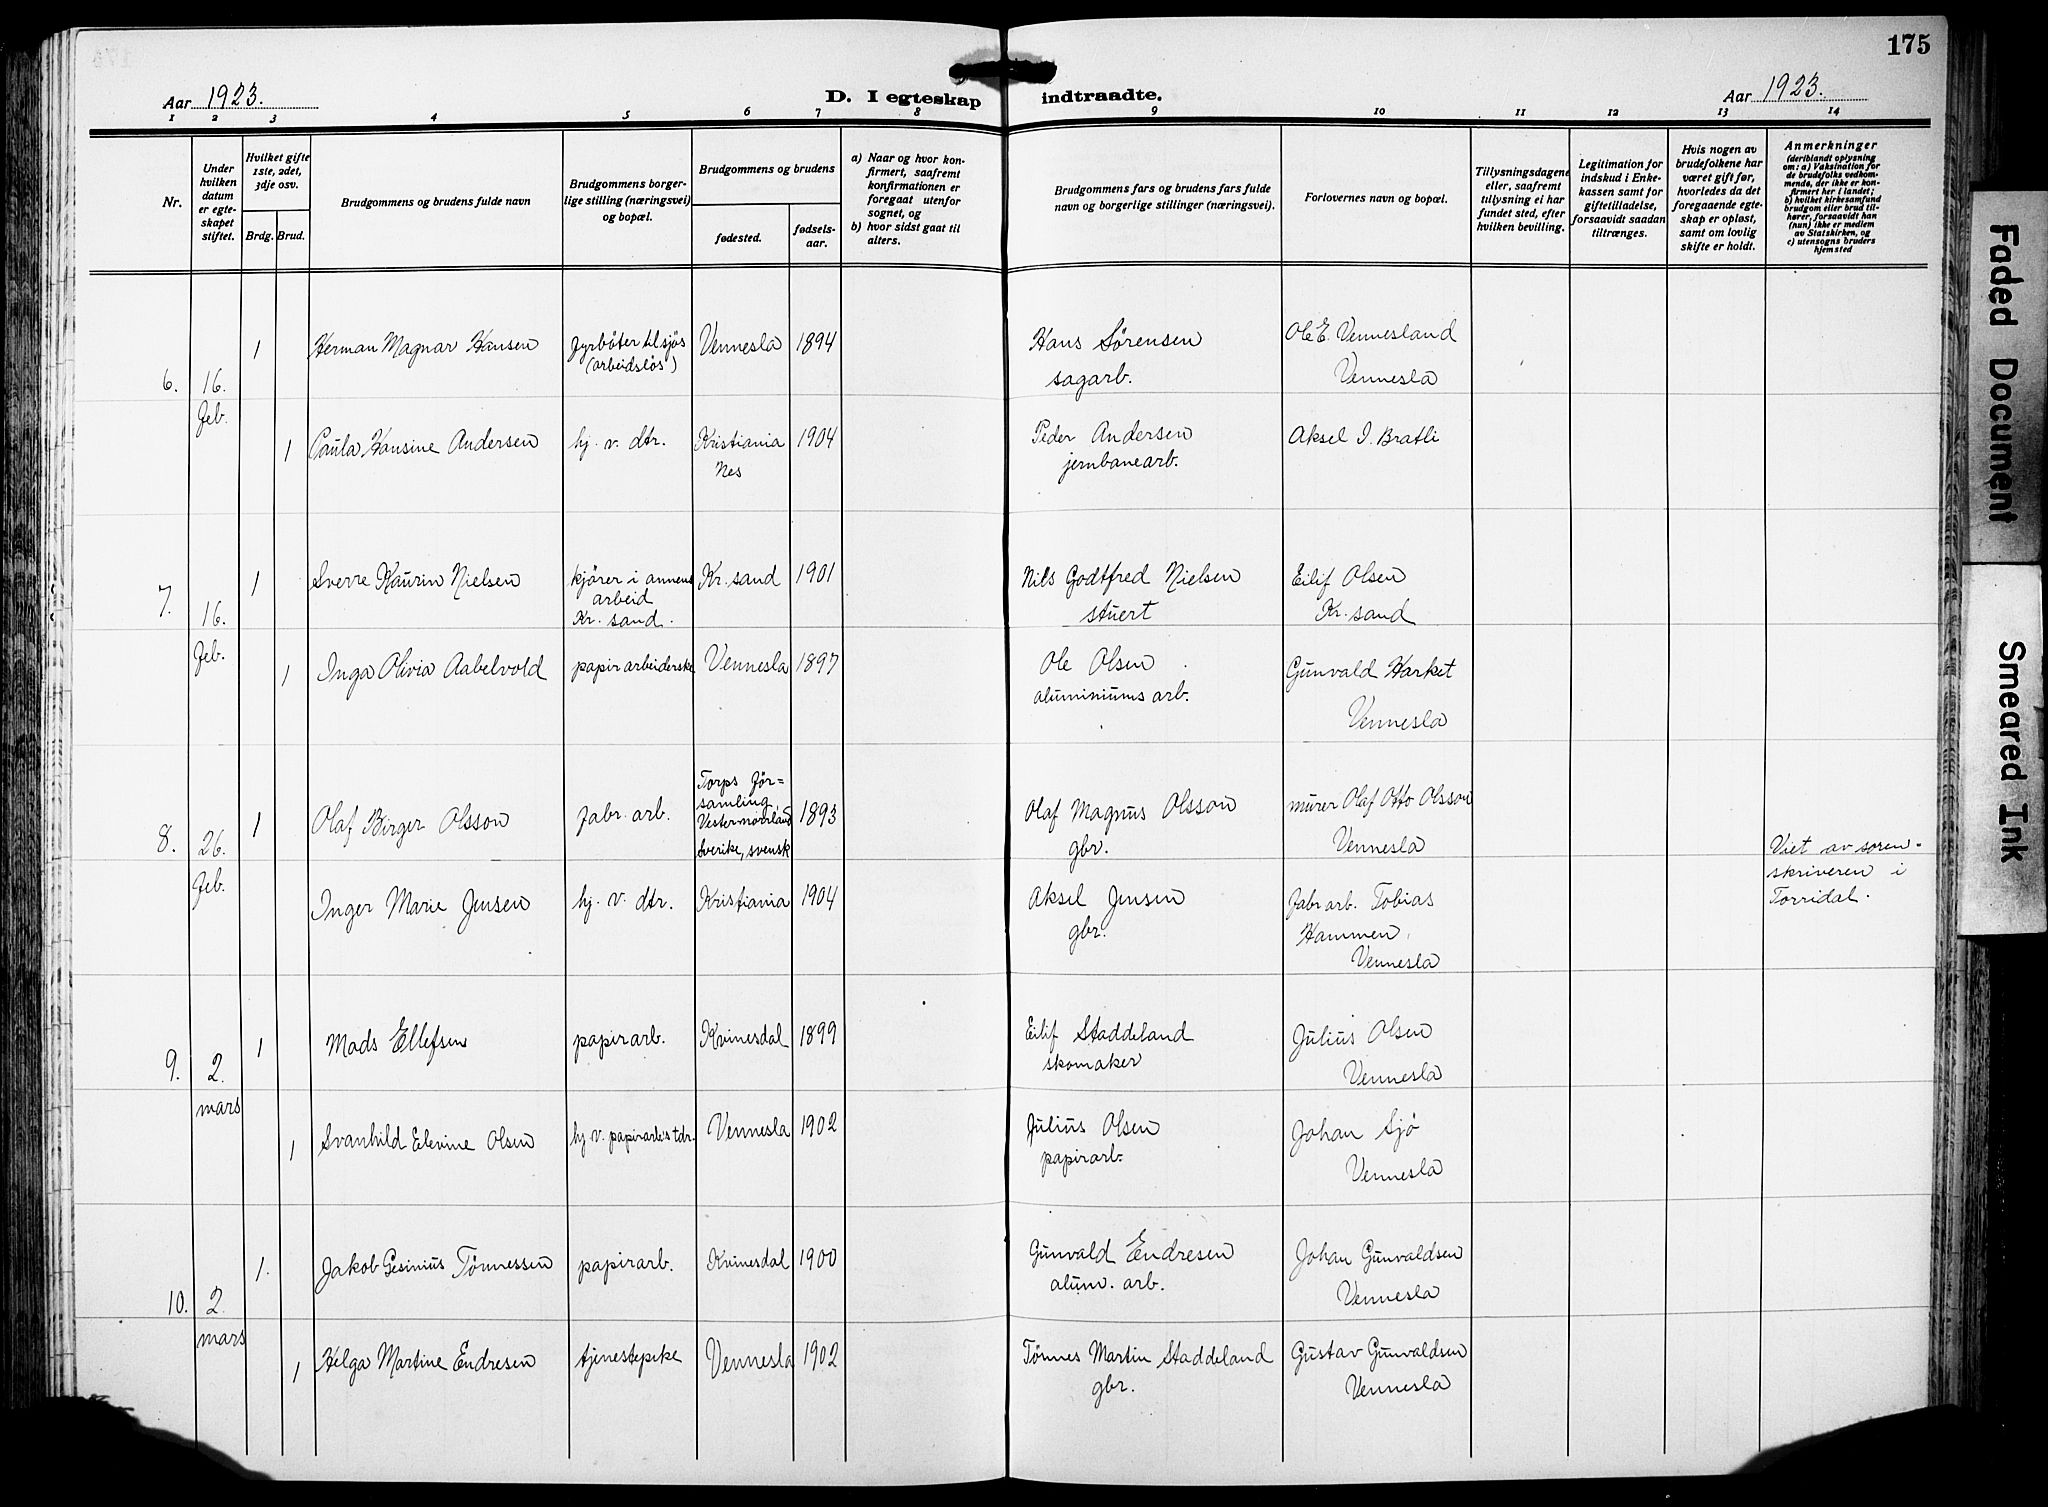 175
Aar 1923.
D. I egteskap indtraadte.
Aar 1923.
1 2 3 4 5 6 7 8 9 10 11 12 13 14
Nr.
Under
hvilken
datum
er egte-
skapet
stiftet.
Hvilket gifte
1ste, 2det,
3dje osv.
Brdg. Brud.
Brudgommens og brudens fulde navn
Brudgommens borger-
lige stilling (næringsvei)
og bopæl.
Brudgommens og brudens
fødested.
fødsels-
aar.
a) Naar og hvor kon-
firmert, saafremt
konfirmationen er
foregaat utenfor
sognet, og
b) hvor sidst gaat til
alters.
Brudgommens fars og brudens fars fulde
navn og borgerlige stillinger (næringsvei).
Forlovernes navn og bopæl.
Tillysningsdagene
eller, saafremt
tillysning ei har
fundet sted, efter
hvilken bevilling.
Legitimation for
indskud i Enke-
kassen samt for
giftetilladelse,
forsaavidt saadan
tiltrænges.
Hvis nogen av
brudefolkene har
været gift før,
hvorledes da det
foregaaende egte-
skap er opløst,
samt om lovlig
skifte er holdt.
Anmerkninger
(deriblandt oplysning
om: a) Vaksination for
de brudefolks vedkom-
mende, der ikke er kon-
firmert her i landet;
b) hvilket kirkesamfund
brudgom eller brud til-
hører, forsaavidt han
(hun) ikke er medlem
av Statskirken, og
c) utensogns bruders
hjemsted
6. 16. Feb.
1 Herman Magnar Hansen
fyrbøter tilsjøs
(arbeidsløs)
Vennesla 1894
Hans Sørensen
sagarb.
Ole E. Vennesland
Vennesla
1 Paula Hansine Andersen
hj. v. dtr.
Kristiania
Nes
1904
Peder Andersen
jernbanearb.
Aksel I. Bratli
7. 16. Feb.
1 Sverre Kaurin Nielsen
kjører i annens
arbeid
Kr. sand.
Kr. sand 1901
Nils Godtfred Nielsen
stuert
Eilif Olsen
Kr. sand
1 Inga Olivia Aabelvold
papirarbeiderske
Vennesla 1897
Ole Olsen
aluminiums arb.
Gunvald Harket
Vennesla
8. 26. Feb.
1 Olaf Birger Olsson
fabr. arb.
Torps För=
samling
Vesternorrland
Sverike, svensk
1893
Olaf Magnus Olsson
gbr.
murer Olaf Otto Olsson
Vennesla
Viet av soren-
skriveren i
Torridal.
Inger Marie Jensen
hj. v. dtr.
Kristiania 1904
Aksel Jensen
gbr.
Fabr arb. Tobias
Hammen,
Vennesla
9. 2. mars
1 Mads Ellefsen
papirarb.
Kvinesdal 1899
Eilif Staddeland
skomaker
Julius Olsen
Vennesla
1 Svanhild Elevine Olsen
hj. v. papirarb's tdr.
Vennesla 1902
Julius Olsen
papirarb.
Johan Sjø
Vennesla
10. 2. mars
1. Jakob Gesinius Tønnessen
papirarb.
Kvinesdal 1900
Gunvald Endresen
alum. arb.
Johan Gunvaldsen
Vennesla
1 Helga Martine Endresen
tjenestepike
Vennesla 1902
Tønnes Martin Staddeland
gbr.
Gustav Gunvaldsen
Vennesla
Faded Document
Smeared Ink